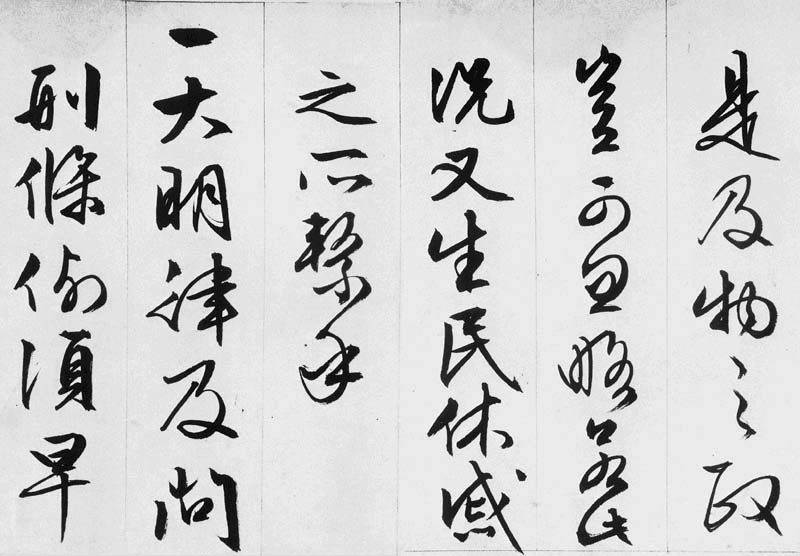 是及物之政
豈可忽略若此
況又生民休戚
之所繫乎
一大明律及問
刑條例須早